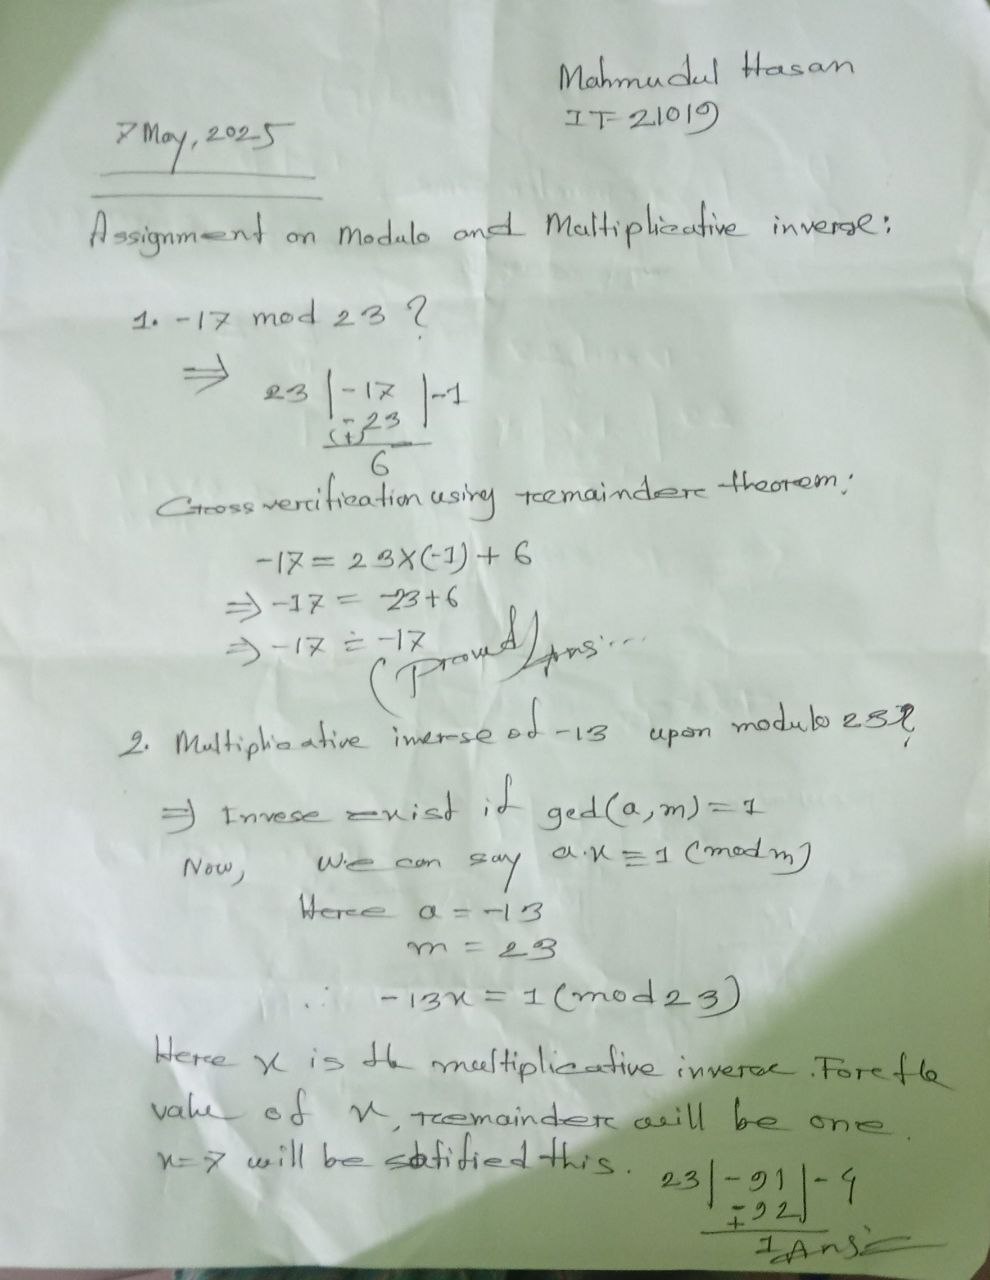 Mahmudul Hasan
IT-21019
7 May, 2025
Assignment on Modulo and Multiplicative inverse:
1. -17 mod 23 ?
⇒ 23 | -17 | -1
-23
(+)
6
Cross verification using remainder theorem:
-17 = 23×(-1) + 6
⇒ -17 = -23+6
⇒ -17 = -17
(Proved) Ans:...
2. Multiplicative inverse of -13 upon modulo 23?
⇒ Invese exist if gcd(a,m) = 1
Now, We can say a.x ≡ 1 (mod m)
Here a = -13
m = 23
∴ -13x = 1 (mod 23)
Here x is the multiplicative inverse. For the
value of x, remainder will be one.
x=7 will be satified this.
23 | -91 | -4
-92
+
1 Ans: